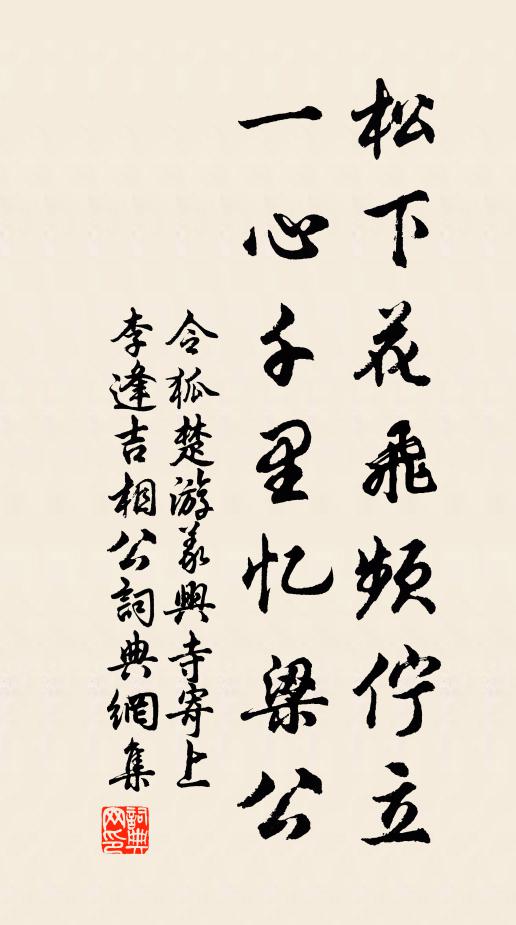 松下花飛頻佇立
一心千里忆梁公
令狐楚游义興寺寄上
李逢吉相公詞典網集
詞典网印